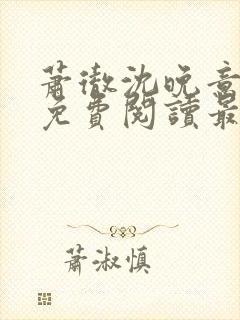 蕭徹沈晚意
免費閱讀最
蕭淑慎